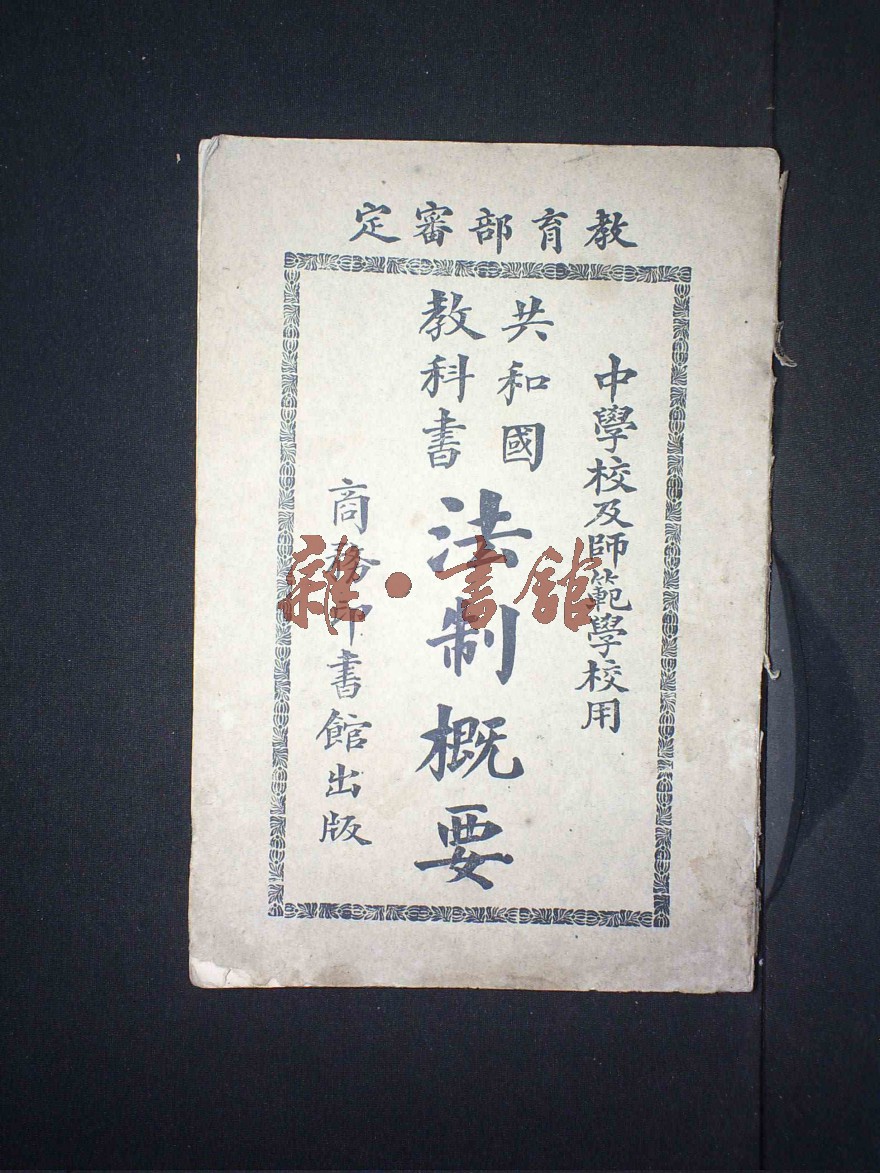 教育部審定
中學校及師範學校用
共和國
教科書
法制概要
商務印書館出版
雜·書館